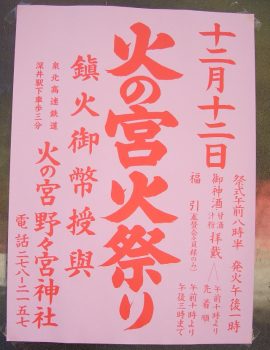 十二月十二日
祭式午前八時半 発火午後一時
御神酒 甘酒 汁粉 拝戴 午前十時より 先着順
福引(奉賛会会員様のみ) 午前十時より 午後三時まで
火の宮火祭り
鎮火御幣授與
泉北高速鉄道
深井駅下車歩三分
火の宮 野々宮神社
電話 二七八-二一五七